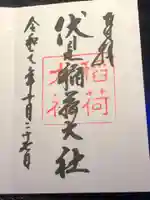 奉拝
伏見稲荷大社
稲荷
本祠
令和七年十月二十七日